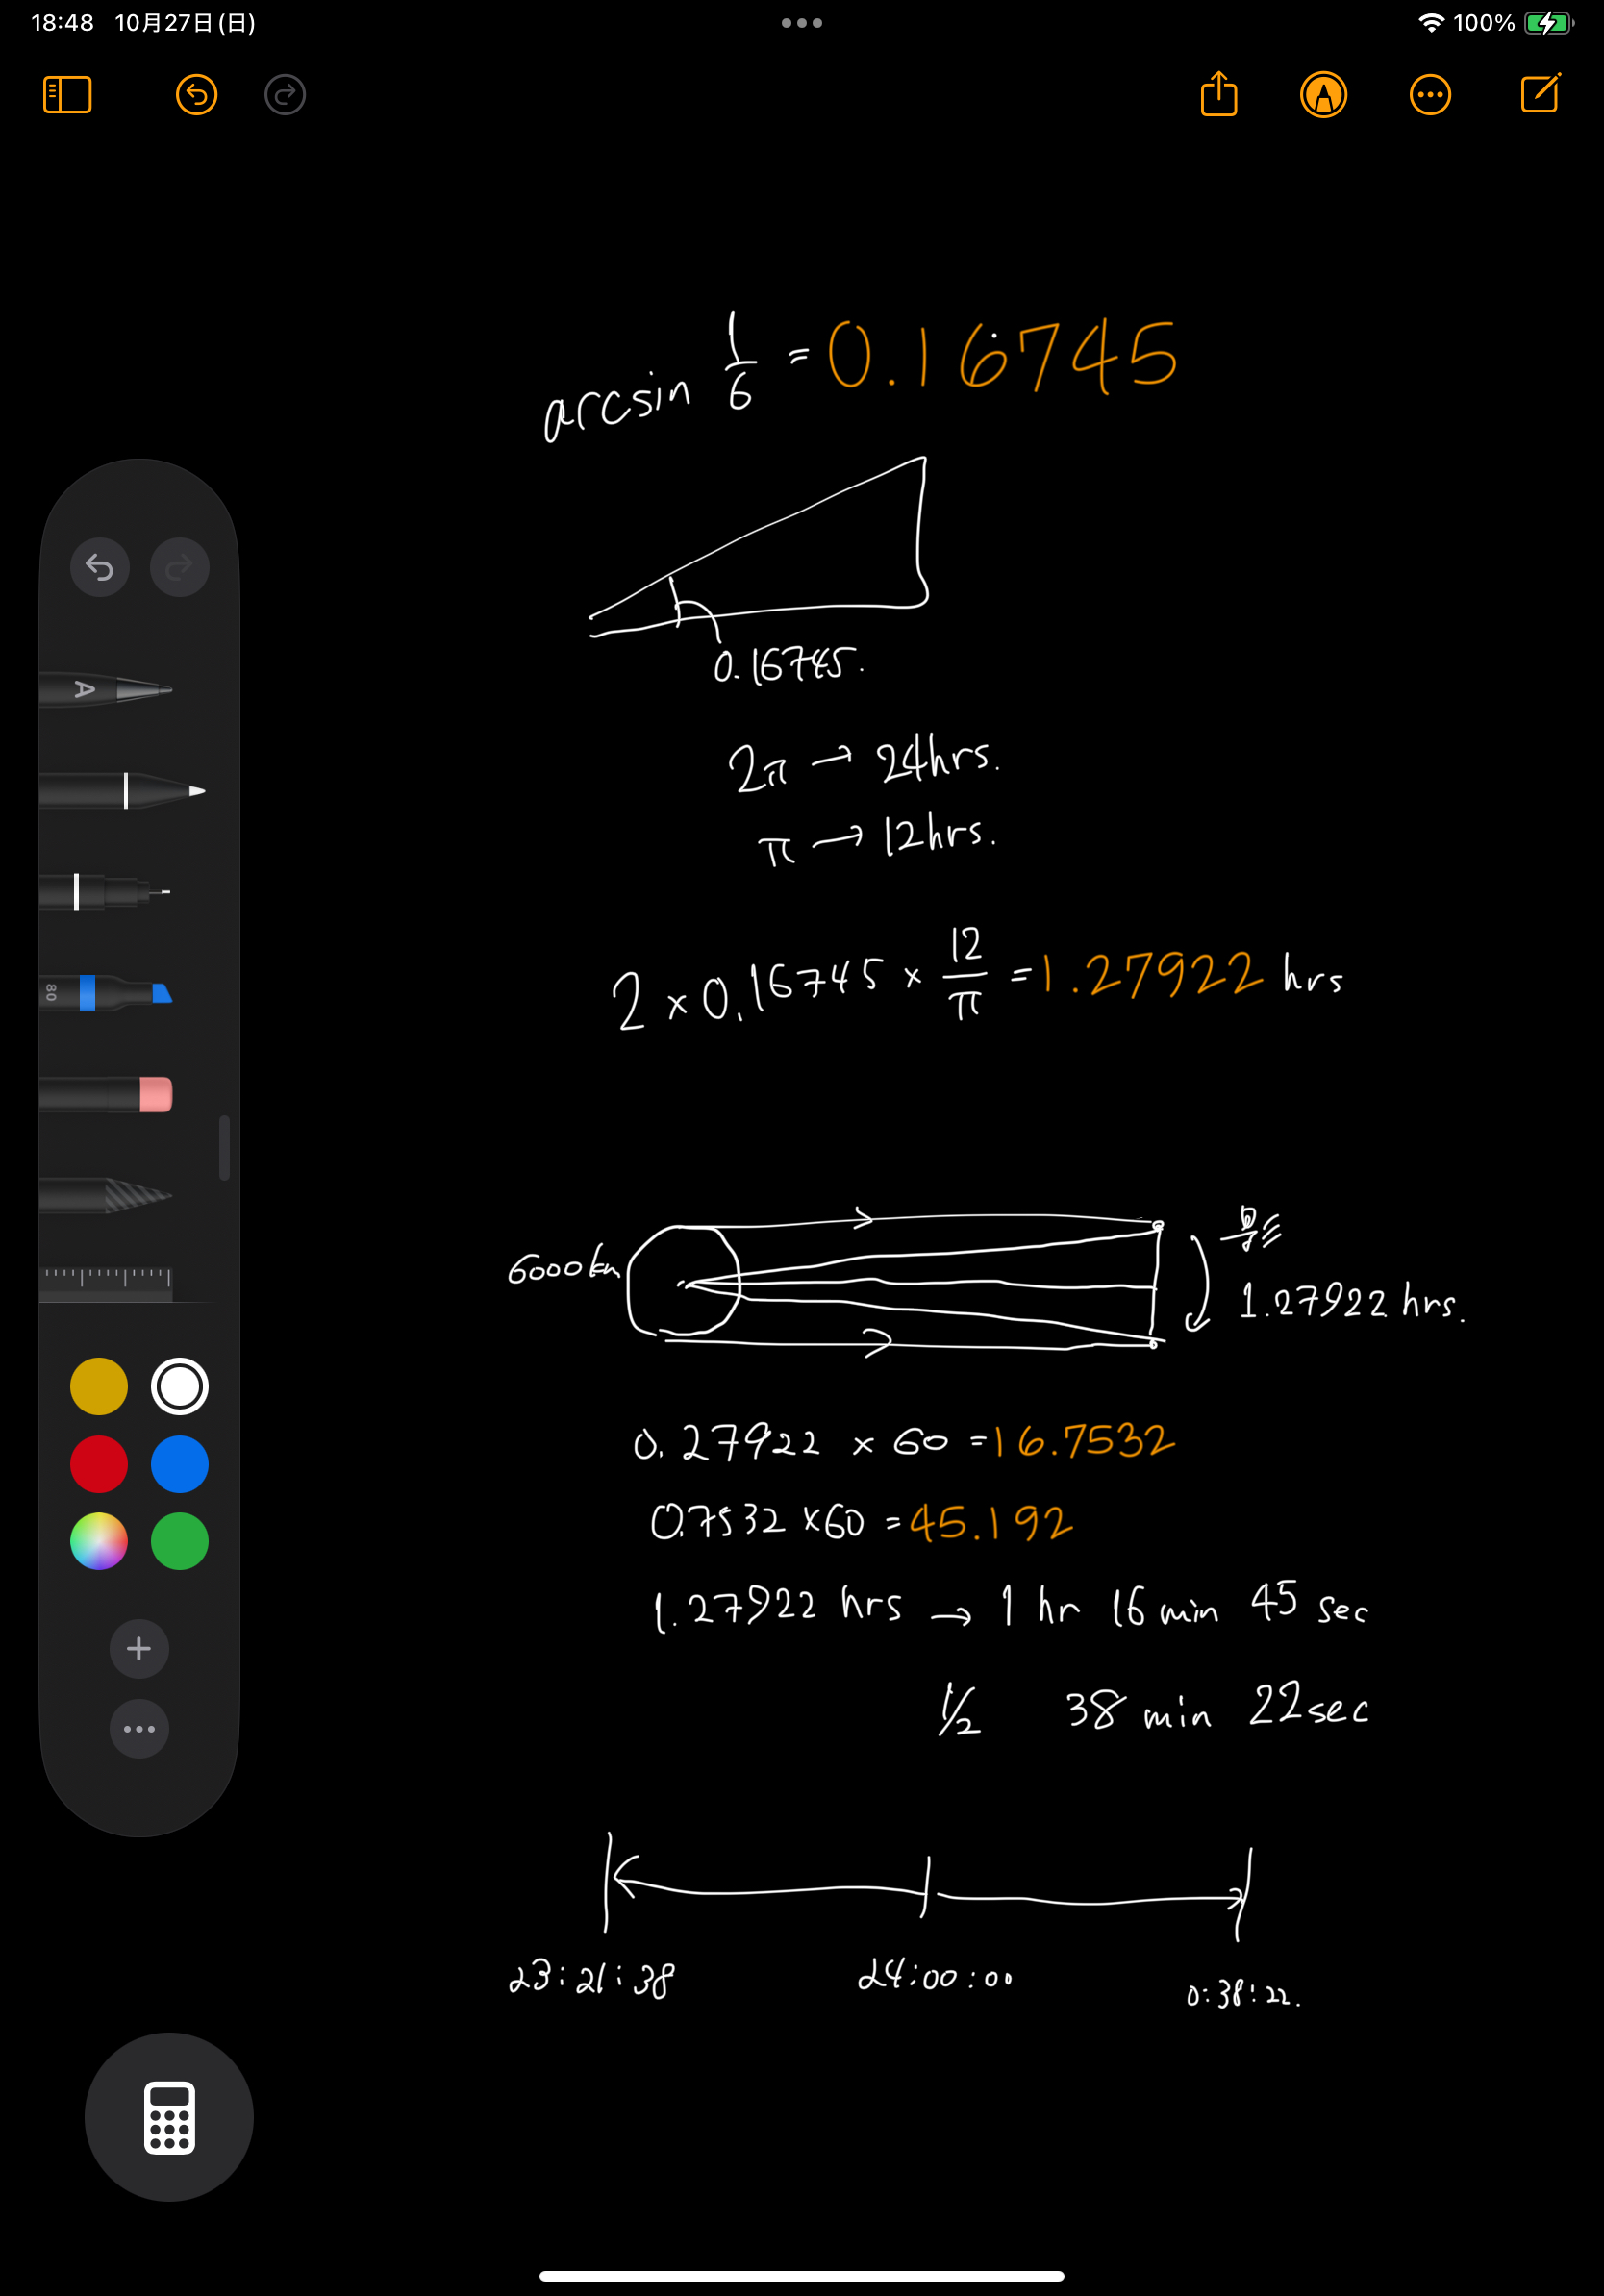 18:48 10月27日(日)
100%
arcsin 1/6 = 0.16745
0.16745.
2π → 24hrs.
π → 12hrs.
2 × 0.16745 × 12/π = 1.27922 hrs
6000km
1.27922 hrs.
0.27922 × 60 = 16.7532
0.7532 × 60 = 45.192
1.27922 hrs → 1 hr 16 min 45 sec
1/2 38 min 22 sec
23:21:38 24:00:00 0:38:22.
A
80